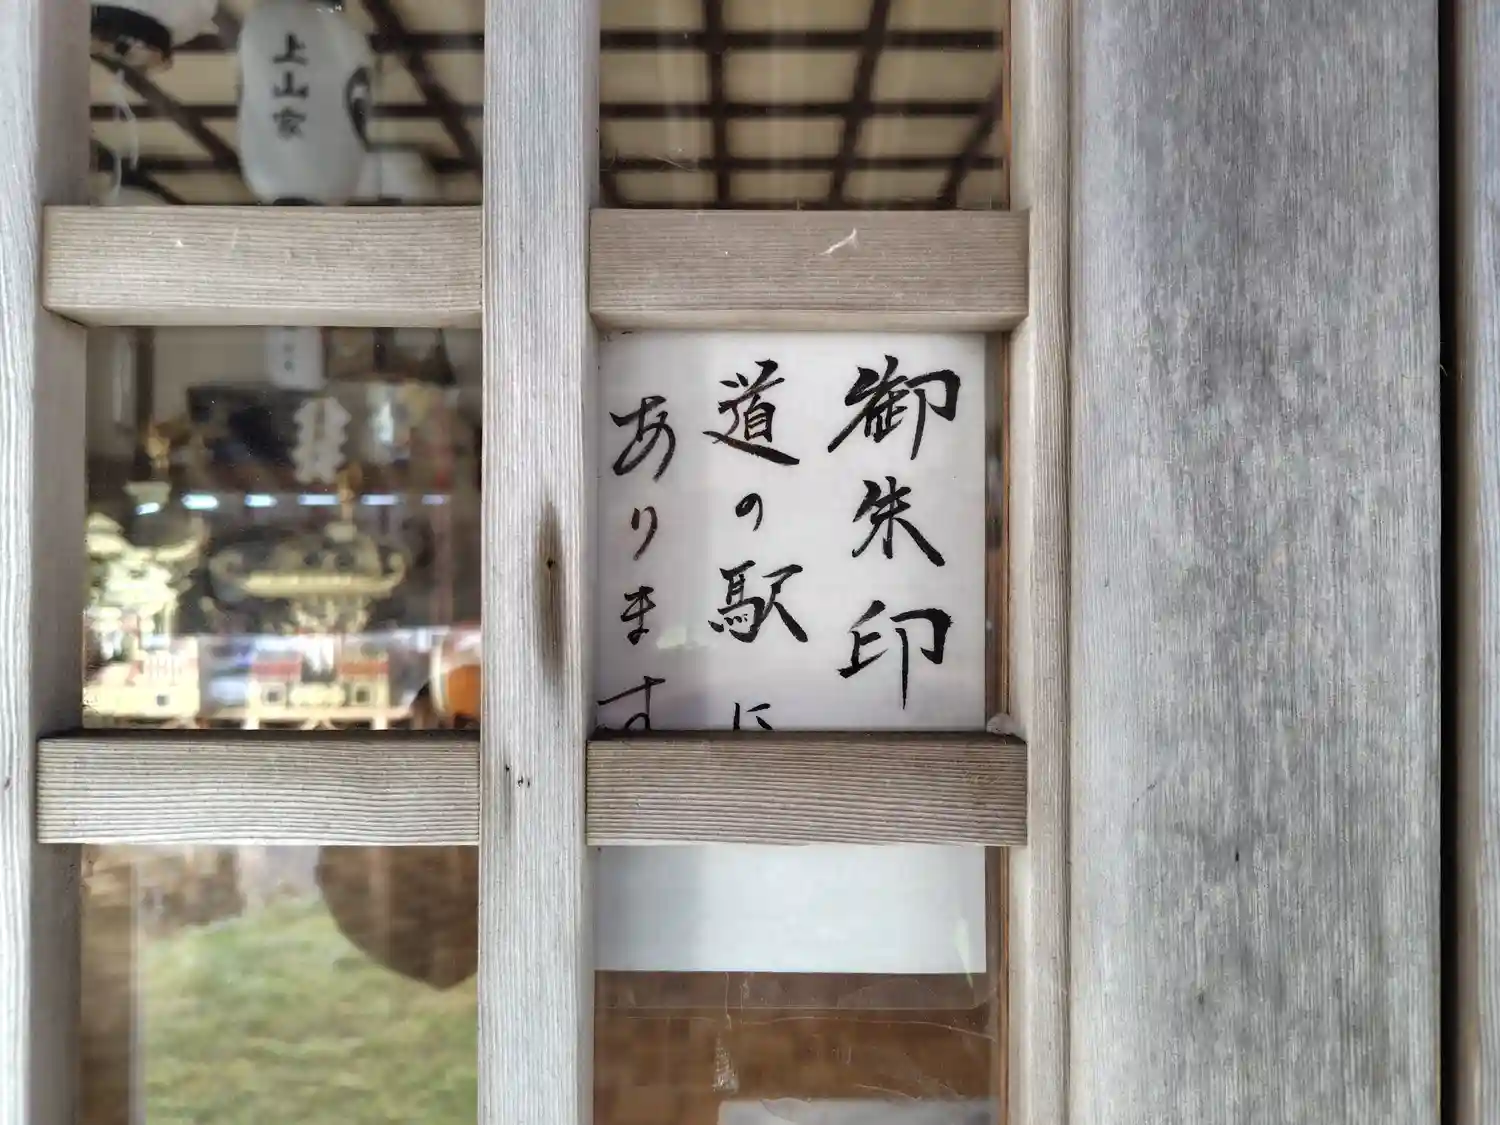 御朱印
道の駅に
あります
上山家